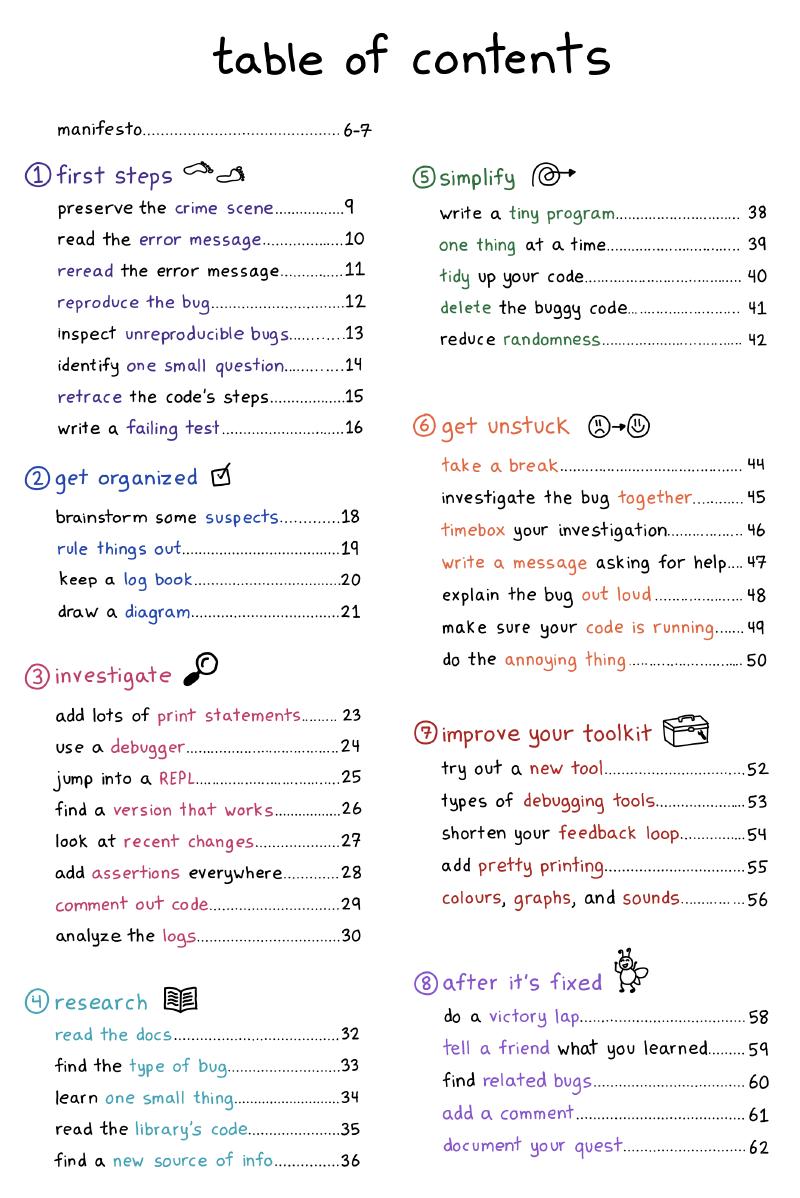 table of contents
manifesto..........................................6-7
① first steps
preserve the crime scene................9
read the error message...................10
reread the error message...............11
reproduce the bug..........................12
inspect unreproducible bugs...........13
identify one small question............14
retrace the code's steps.................15
write a failing test.........................16
② get organized
brainstorm some suspects............18
rule things out................................19
keep a log book..............................20
draw a diagram..............................21
③ investigate
add lots of print statements........ 23
use a debugger..............................24
jump into a REPL............................25
find a version that works..............26
look at recent changes..................27
add assertions everywhere............28
comment out code..........................29
analyze the logs............................30
④ research
read the docs.................................32
find the type of bug.......................33
learn one small thing.....................34
read the library's code..................35
find a new source of info..............36
⑤ simplify
write a tiny program......................... 38
one thing at a time........................... 39
tidy up your code............................... 40
delete the buggy code...................... 41
reduce randomness............................ 42
⑥ get unstuck
take a break..................................... 44
investigate the bug together........... 45
timebox your investigation............... 46
write a message asking for help.... 47
explain the bug out loud................. 48
make sure your code is running...... 49
do the annoying thing....................... 50
⑦ improve your toolkit
try out a new tool............................52
types of debugging tools..................53
shorten your feedback loop.............54
add pretty printing............................55
colours, graphs, and sounds.............56
⑧ after it's fixed
do a victory lap.................................58
tell a friend what you learned........59
find related bugs..............................60
add a comment..................................61
document your quest.........................62